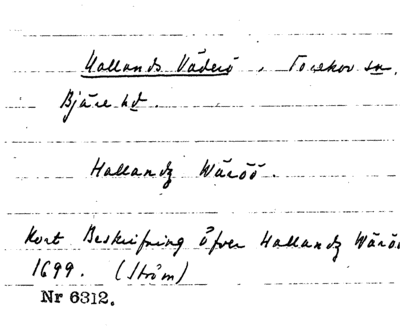 Hallands Väderö, Torekov sn.
Bjäre hd.
Hallandz Wäröö.
Kort Beskrifning öfver Hallandz Wärö
1699. (Ström)
Nr 6312.